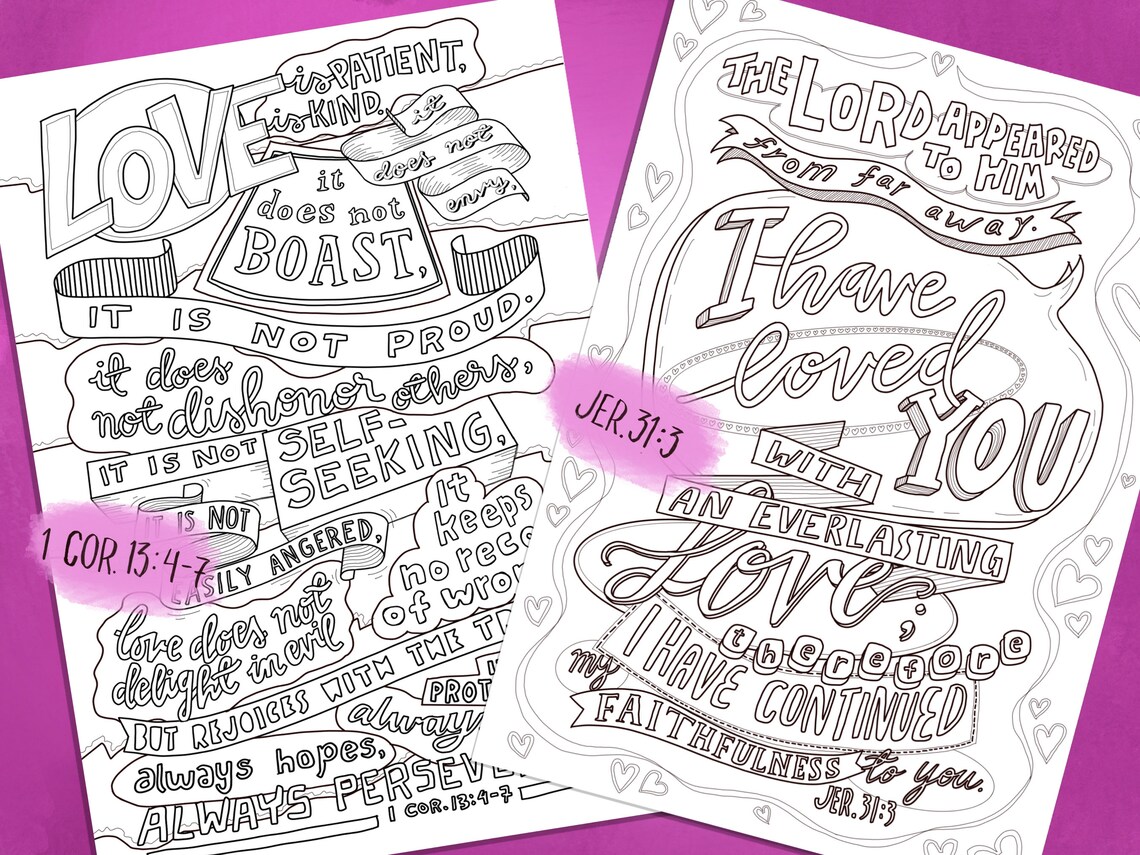 LOVE is PATIENT,
is KIND.
it
does not
envy,
it
does not
BOAST,
IT IS NOT PROUD.
it does
not dishonor others,
IT IS NOT SELF-
SEEKING,
IT IS NOT
EASILY ANGERED,
It
keeps
no reco
of wron
love does not
delight in evil
BUT REJOICES WITH THE T
PROT
always
always hopes,
ALWAYS PERSEVE
1 COR. 13:4-7
1 COR. 13:4-7
THE LORD APPEARED
TO HIM
from far away.
I have
loved
YOU
WITH
AN EVERLASTING
Love;
therefore
I HAVE CONTINUED
my
FAITHFULNESS
to you.
JER. 31:3
JER. 31:3